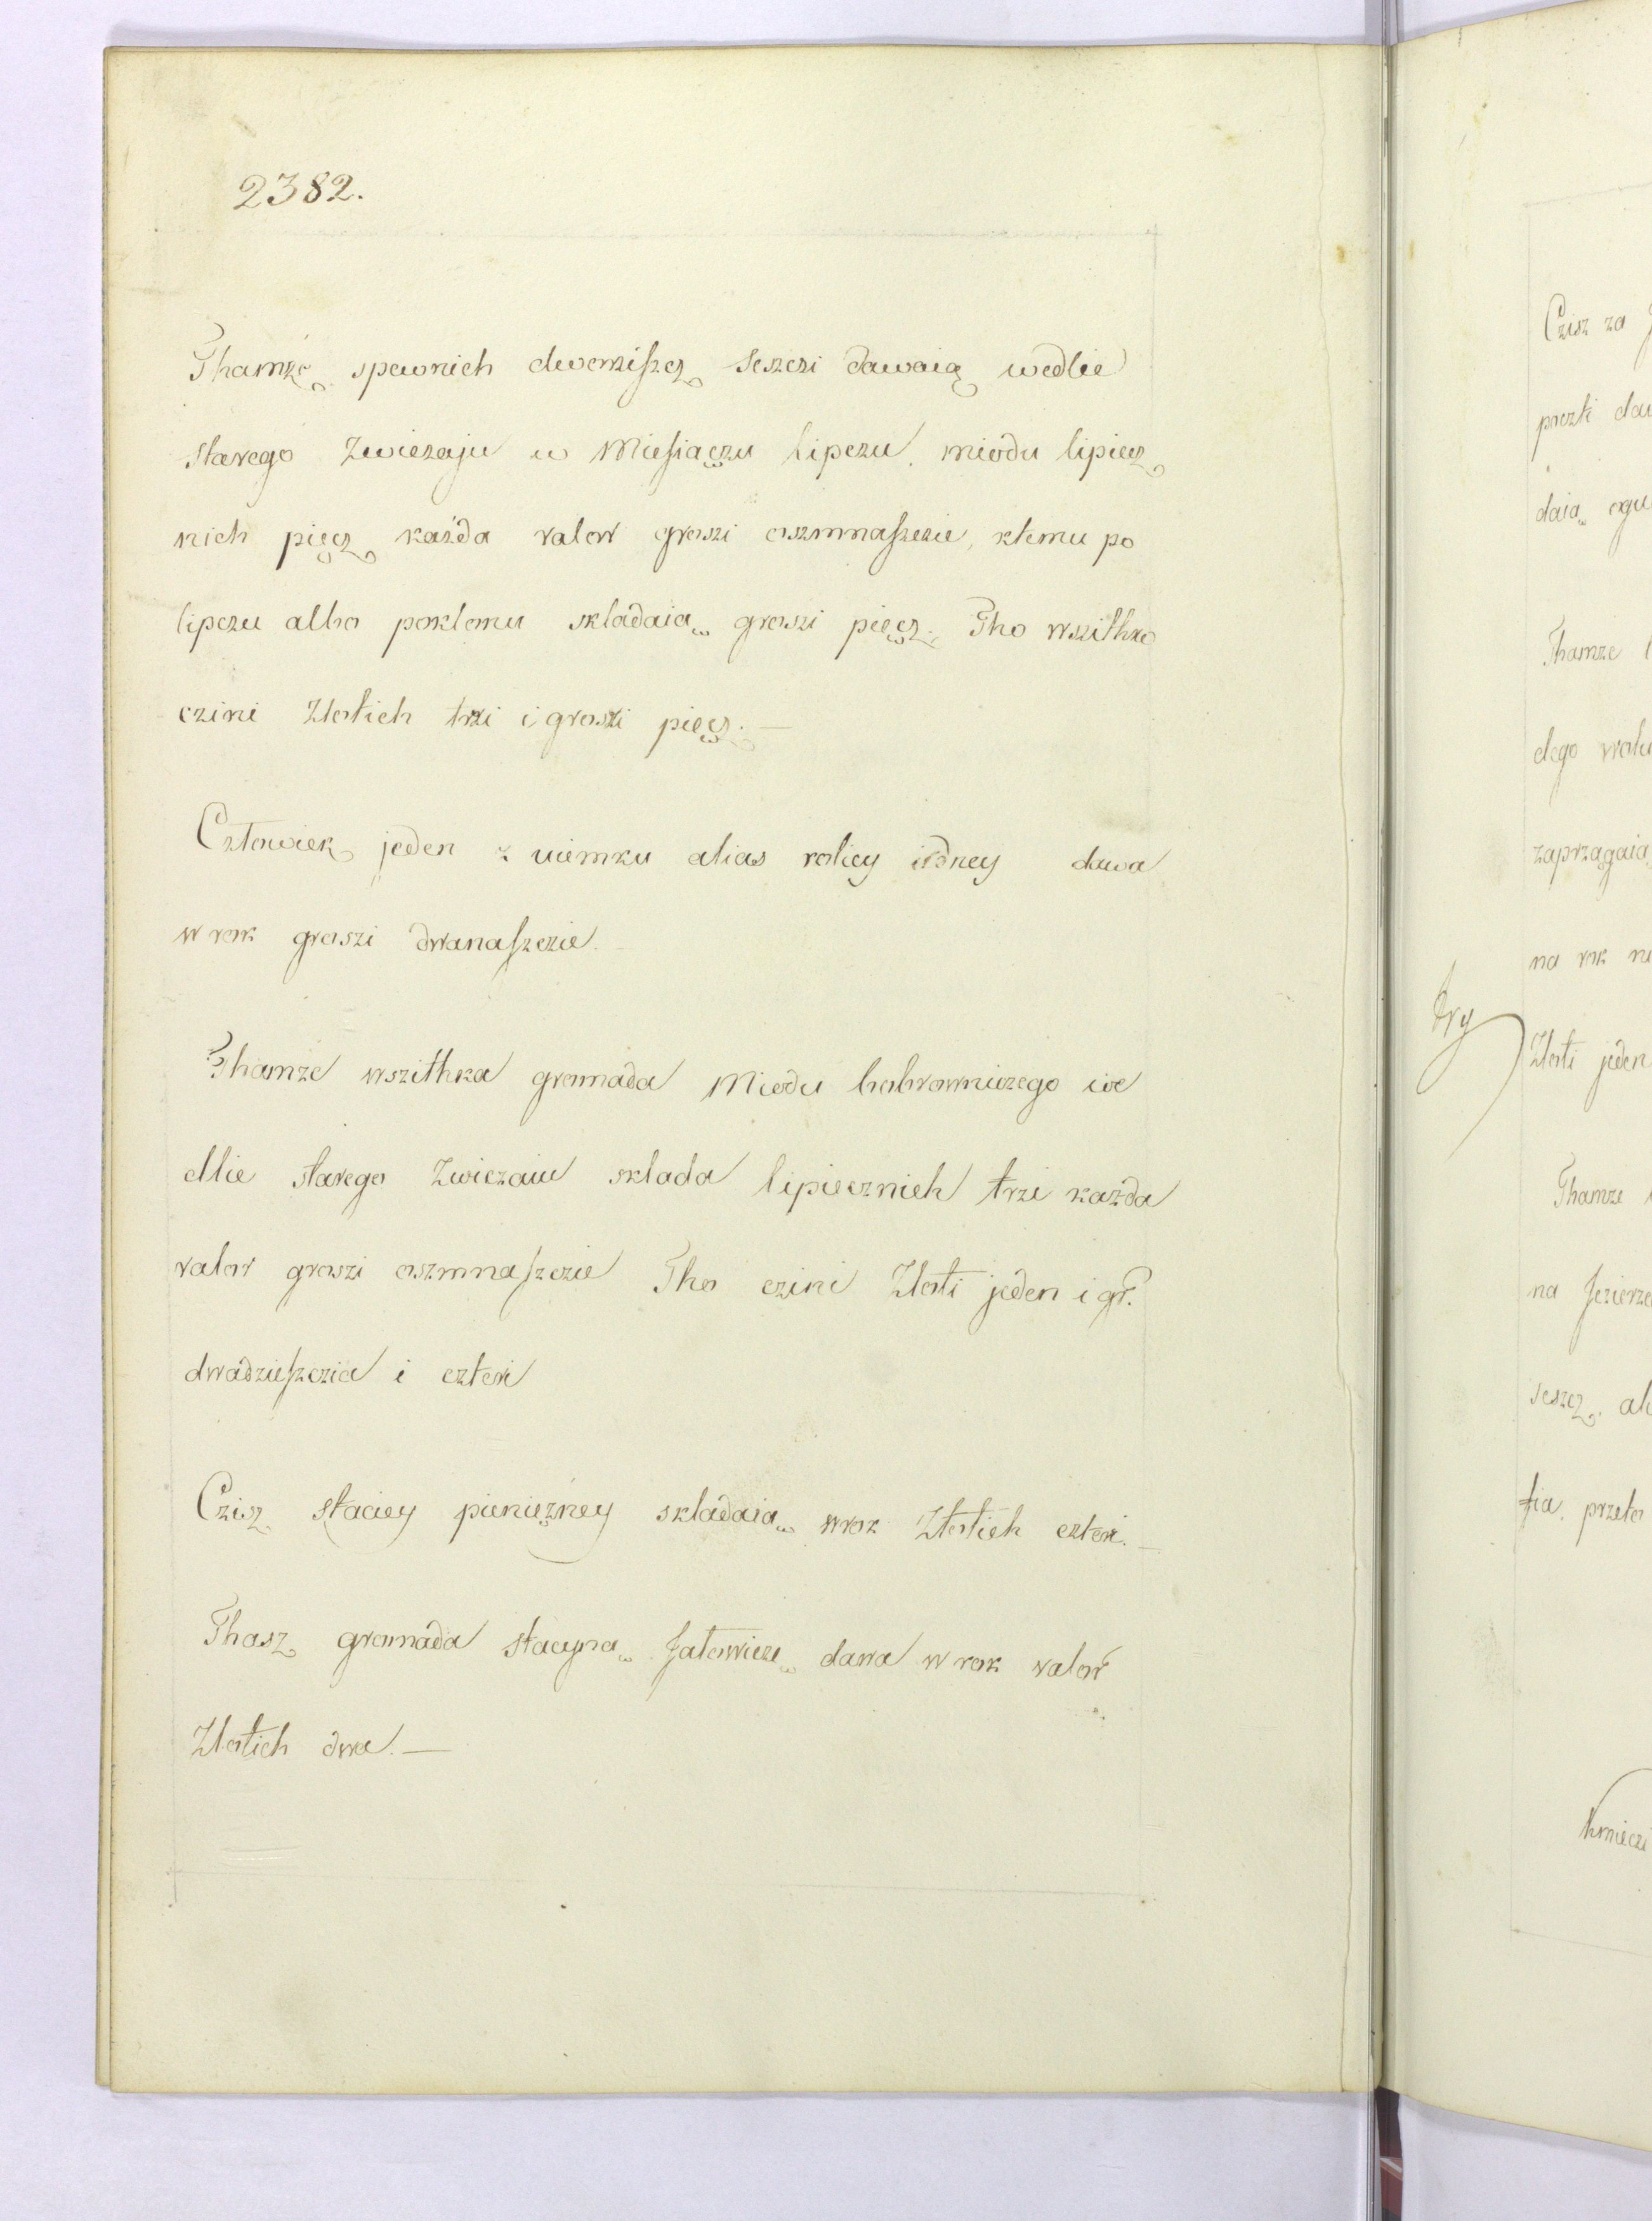 2382.
Thamże spewnich dworziszcz seszczi dawaią wedlie
starego Zwiczaju w Miesiączu Lipczu. miodu lipiecz
nich pięcz każda valor groszi oszmnaszczie, ktemu po
lipczu albo poklonu skladaią groszi pięcz. Tho wszithko
czini Zlotich trzi i groszi pięcz. —
Człowiek jeden z uiemku alias roliey iedney dawa
w rok groszi dwanaszczie. —
Thamze wszithka gromada Miodu bobrowniczego we
dlie starego Zwiczaiu sklada lipiecznich trzi każda
valor groszi oszmnaszczie Tho czini Zloti jeden i gr.
dwadzieszczia i czteri
Czisz staciey pienięzney składaią wrok Złotich czteri. —
Thasz gromada stacyiną Jałowiczę dawa w rok valor
Zlotich dwa. —
Czisz za
poczti
daią
Thamze
dego
zaprzągaią
na rok
try
Zloti jeden
Thamze
na Jezierze
seszcz.
tia. przeto
kmieczi